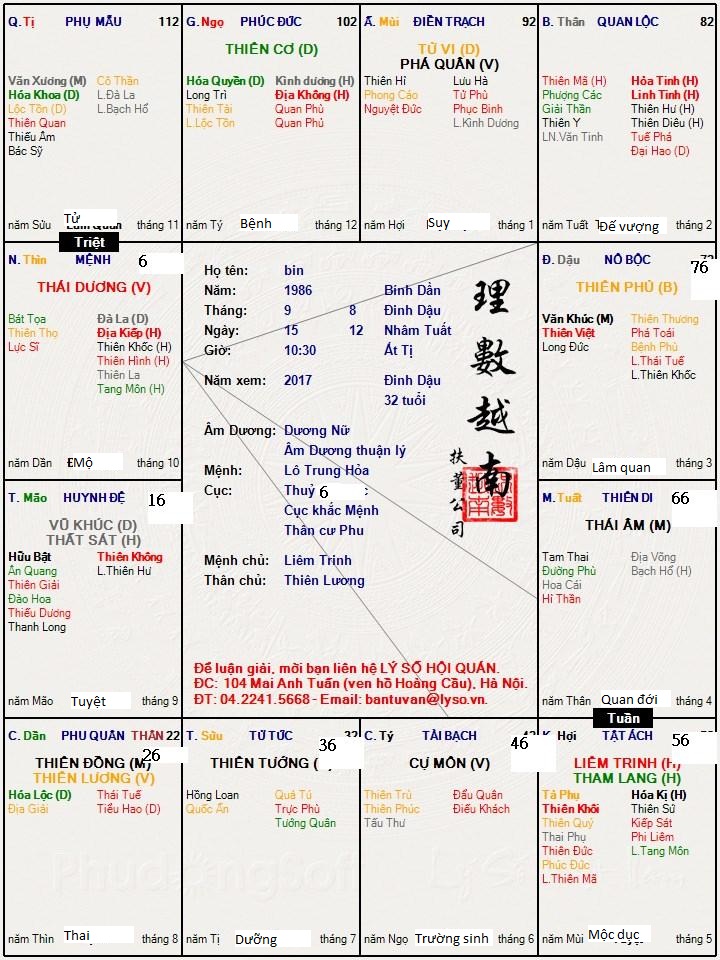 Q. Tị PHỤ MẪU 112
Văn Xương (M) Cô Thần
Hóa Khoa (D) L.Đà La
Lộc Tồn (D) L.Bạch Hổ
Thiên Quan
Thiếu Âm
Bác Sỹ
Tử
năm Sửu tháng 11
G. Ngọ PHÚC ĐỨC 102
THIÊN CƠ (D)
Hóa Quyền (D) Kình dương (H)
Long Trì Địa Không (H)
Thiên Tài Quan Phủ
L.Lộc Tồn Quan Phủ
năm Tý Bệnh tháng 12
Mùi ĐIỀN TRẠCH 92
TỬ VI (D)
PHÁ QUÂN (V)
Thiên Hỉ Lưu Hà
Phong Cáo Tử Phù
Nguyệt Đức Phục Binh
L.Kình Dương
năm Hợi Suy tháng 1
B. Thân QUAN LỘC 82
Thiên Mã (H) Hỏa Tinh (H)
Phượng Các Linh Tinh (H)
Giải Thần Thiên Hư (H)
Thiên Y Thiên Diêu (H)
LN.Văn Tinh Tuế Phá
Đại Hao (D)
năm Tuất Đế vượng tháng 2
Triệt
N. Thìn MỆNH 6
THÁI DƯƠNG (V)
Bát Tọa Đà La (D)
Thiên Thọ Địa Kiếp (H)
Lực Sĩ Thiên Khốc (H)
Thiên Hình (H)
Thiên La
Tang Môn (H)
năm Dần Mộ tháng 10
Họ tên: bin
Năm: 1986 Bính Dần
Tháng: 9 8 Đinh Dậu
Ngày: 15 12 Nhâm Tuất
Giờ: 10:30 Ất Tị
Năm xem: 2017 Đinh Dậu
32 tuổi
Âm Dương: Dương Nữ
Âm Dương thuận lý
Mệnh: Lô Trung Hỏa
Cục: Thuỷ 6
Cục khắc Mệnh
Thân cư Phu
Mệnh chủ: Liêm Trinh
Thân chủ: Thiên Lương
理數越南
扶董公司
Để luận giải, mời bạn liên hệ LÝ SỐ HỘI QUÁN.
ĐC: 104 Mai Anh Tuấn (ven hồ Hoàng Cầu), Hà Nội.
ĐT: 04.2241.5668 - Email: bantuvan@lyso.vn.
Đ. Dậu NÔ BỘC 76
THIÊN PHỦ (B)
Văn Khúc (M) Thiên Thương
Thiên Việt Phá Toái
Long Đức Bệnh Phù
L.Thái Tuế
L.Thiên Khốc
năm Dậu Lâm quan tháng 3
T. Mão HUYNH ĐỆ 16
VŨ KHÚC (D)
THẤT SÁT (H)
Hữu Bật Thiên Không
Ân Quang L.Thiên Hư
Thiên Giải
Đào Hoa
Thiếu Dương
Thanh Long
năm Mão Tuyệt tháng 9
M. Tuất THIÊN DI 66
THÁI ÂM (M)
Tam Thai Địa Võng
Đường Phù Bạch Hổ (H)
Hoa Cái
Hỉ Thần
năm Thân Quan đới tháng 4
Tuần
C. Dần PHU QUÂN THÂN 22
26
THIÊN ĐỒNG (M)
THIÊN LƯƠNG (V)
Hóa Lộc (D) Thái Tuế
Địa Giải Tiểu Hao (D)
năm Thìn Thai tháng 8
T. Sửu TỬ TỨC 36
THIÊN TƯỚNG
Hồng Loan Quả Tú
Quốc Ấn Trực Phù
Tướng Quân
năm Tị Dưỡng tháng 7
C. Tý TÀI BẠCH 46
CỰ MÔN (V)
Thiên Trù Đẩu Quân
Thiên Phúc Điếu Khách
Tấu Thư
năm Ngọ Trường sinh tháng 6
Hợi TẬT ÁCH 56
LIÊM TRINH (H)
THAM LANG (H)
Tả Phụ Hóa Kị (H)
Thiên Khôi Thiên Sứ
Thiên Quý Kiếp Sát
Thai Phụ Phi Liêm
Thiên Đức L.Tang Môn
Phúc Đức
L.Thiên Mã
năm Mùi Mộc dục tháng 5